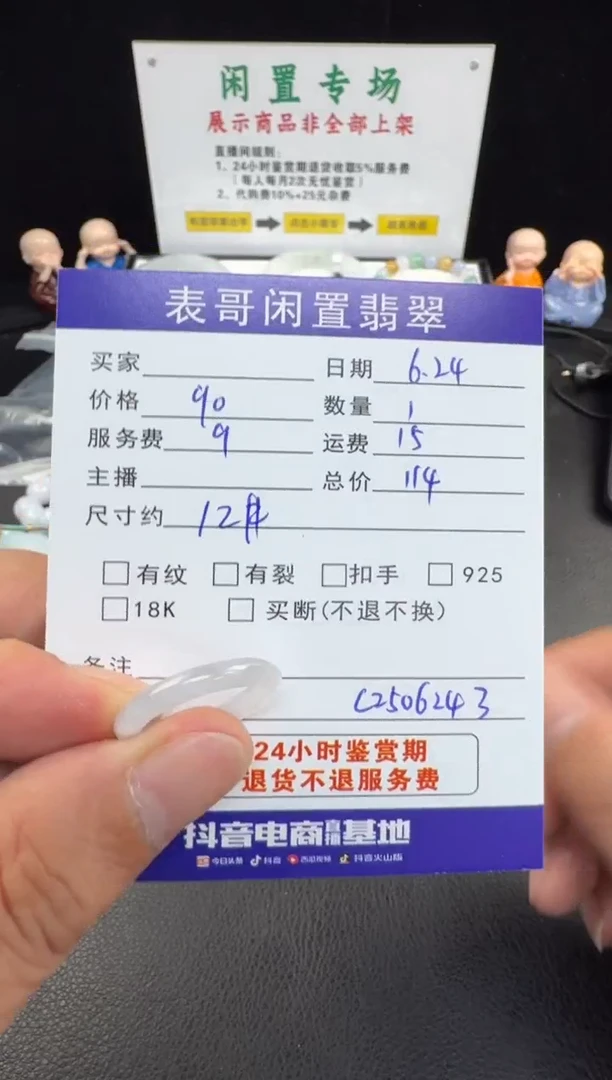 闲置专场
展示商品非全部上架
直播间规则:
1、24小时鉴赏期退货收取5%服务费
(每人每月2次无忧鉴赏)
2、代购费10%+25元杂费
表哥闲置翡翠
买家 日期 6.24
价格 90 数量 1
服务费 9 运费 15
主播 总价 114
尺寸约 12#
有纹 有裂 扣手 925
18K 买断(不退不换)
备注
C2506243
24小时鉴赏期
退货不退服务费
抖音电商直播基地
今日头条 抖音 西瓜视频 抖音火山版